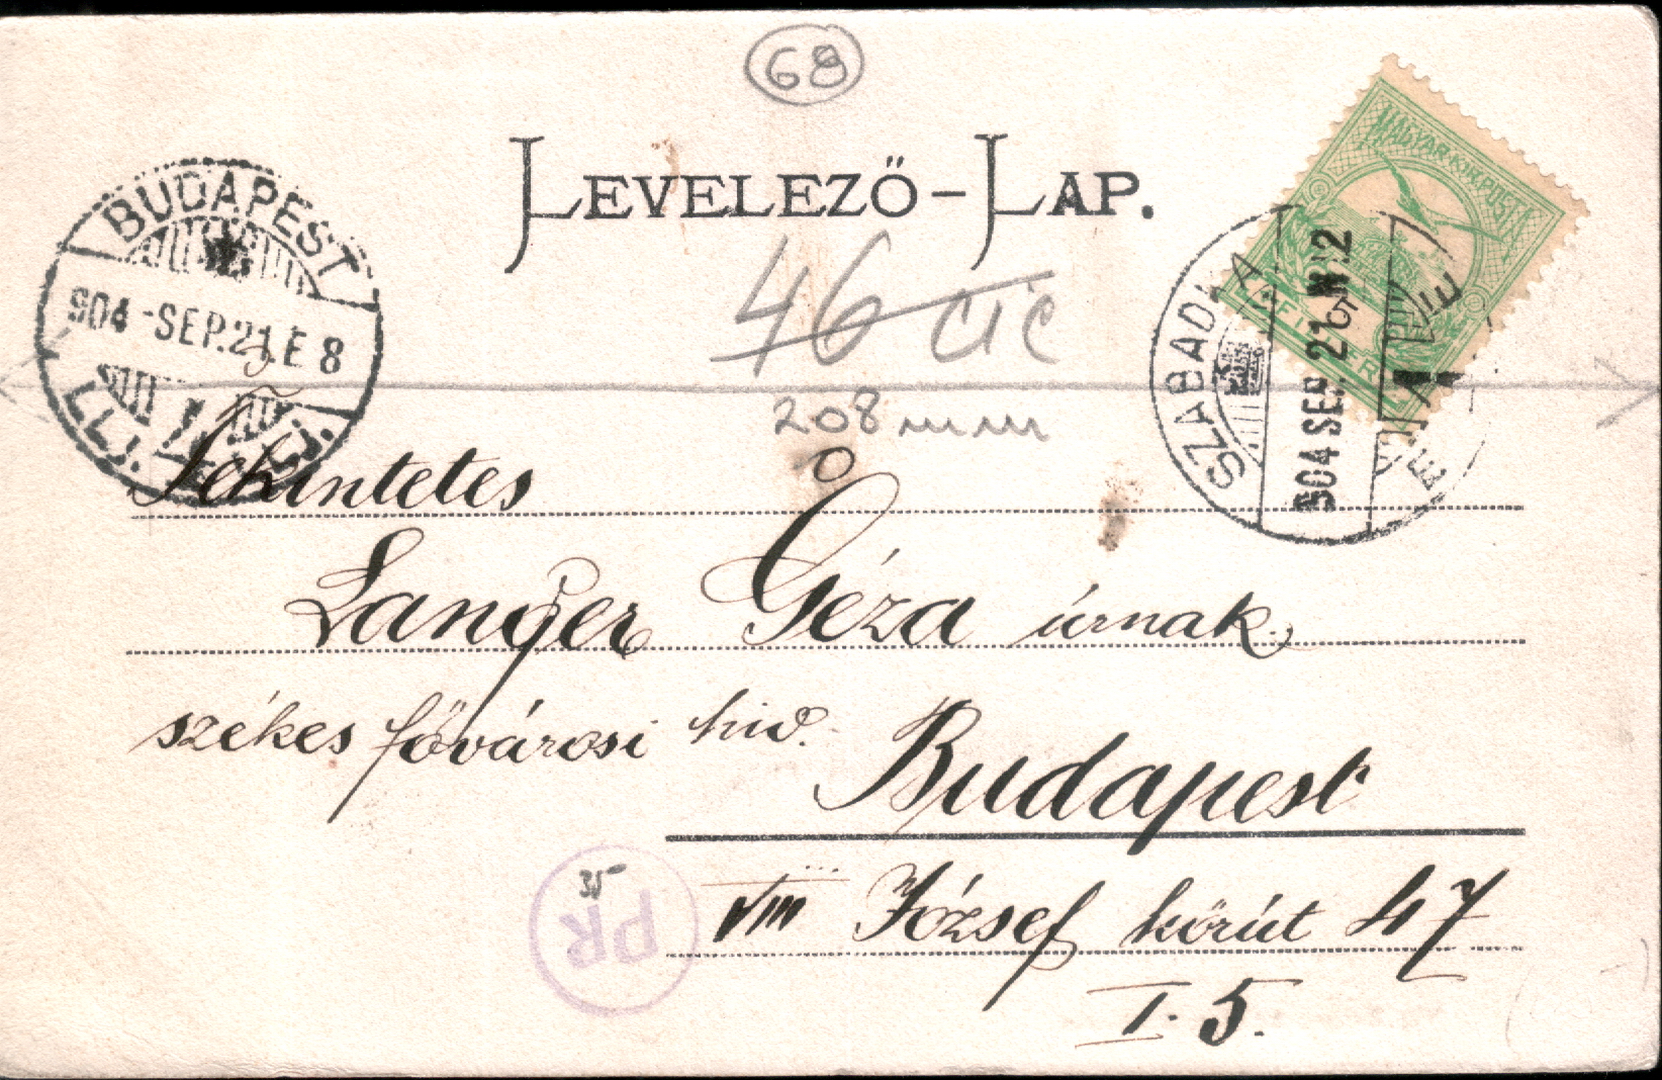 68
LEVELEZŐ-LAP.
MAGYAR KIR. POSTA
BUDAPEST
904 -SEP. 21. E 8
SZABAD
904 SEP. 21. N 2
46 cic
208 mm
Tekintetes
Langer Géza úrnak
székes fővárosi hiv.
Budapest
VIII József körút 47
I. 5.
35
PR